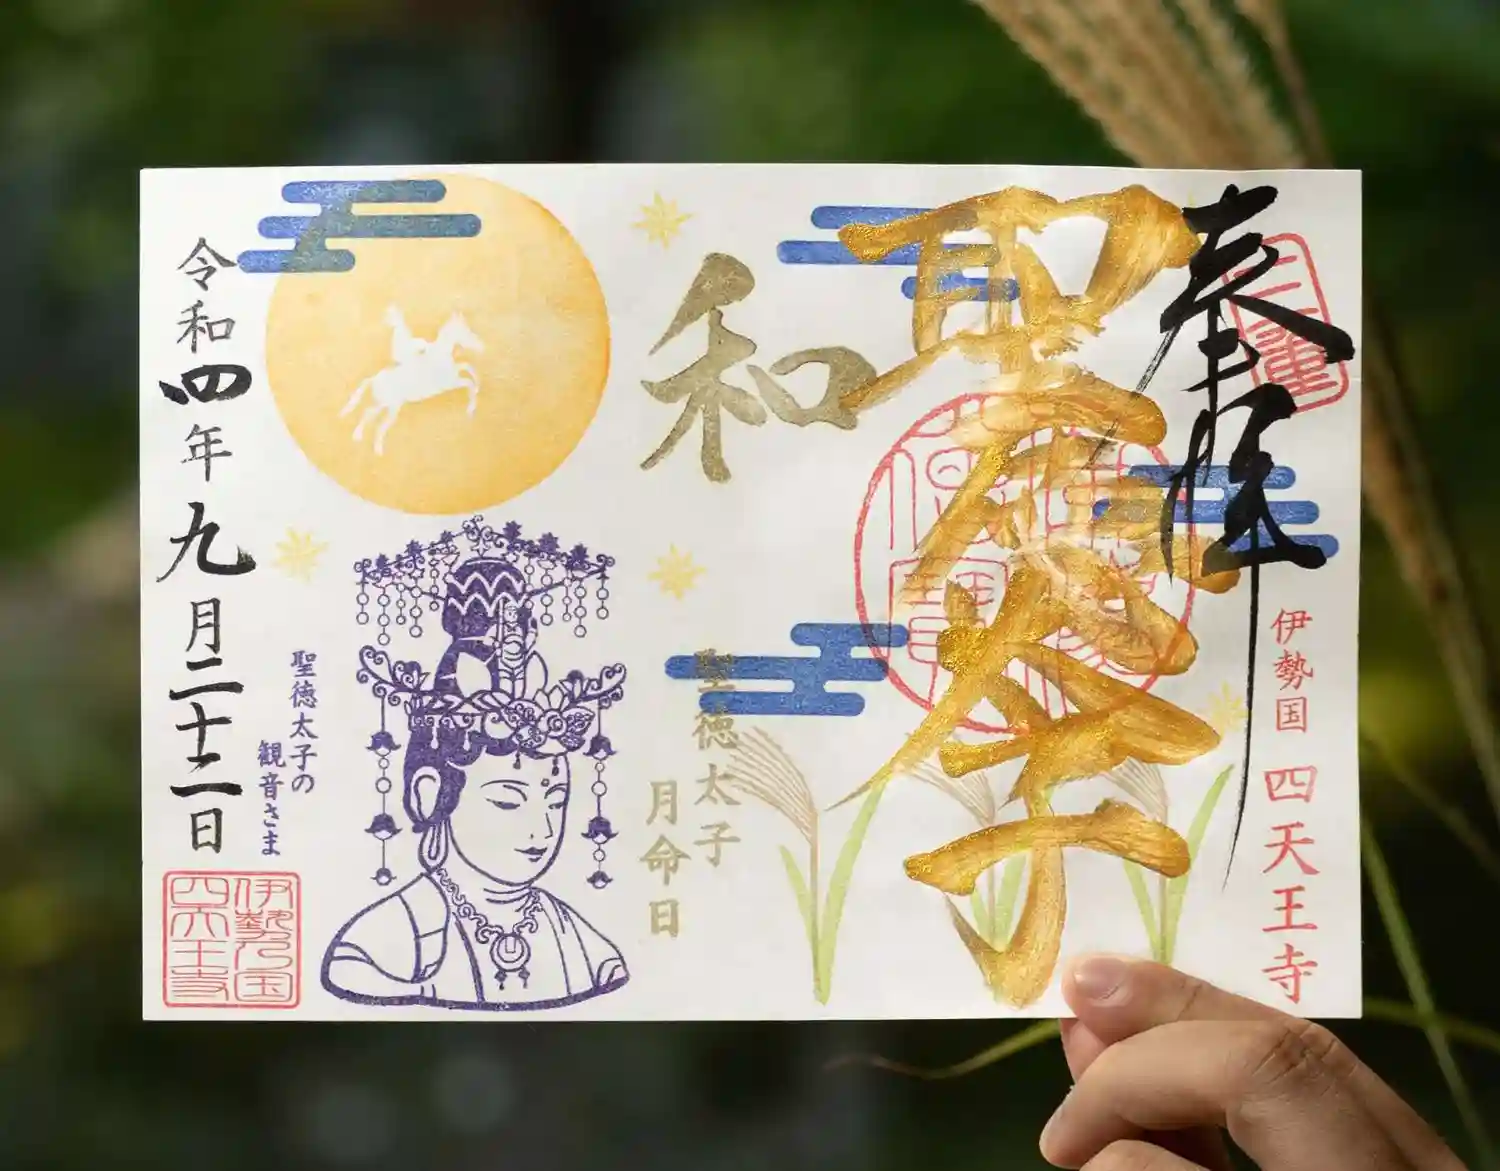 三重
奉拝
伊勢国 四天王寺
聖徳太子
和
聖徳太子
月命日
聖徳太子の
観音さま
令和四年九月二十二日
伊勢乃国
四天王寺